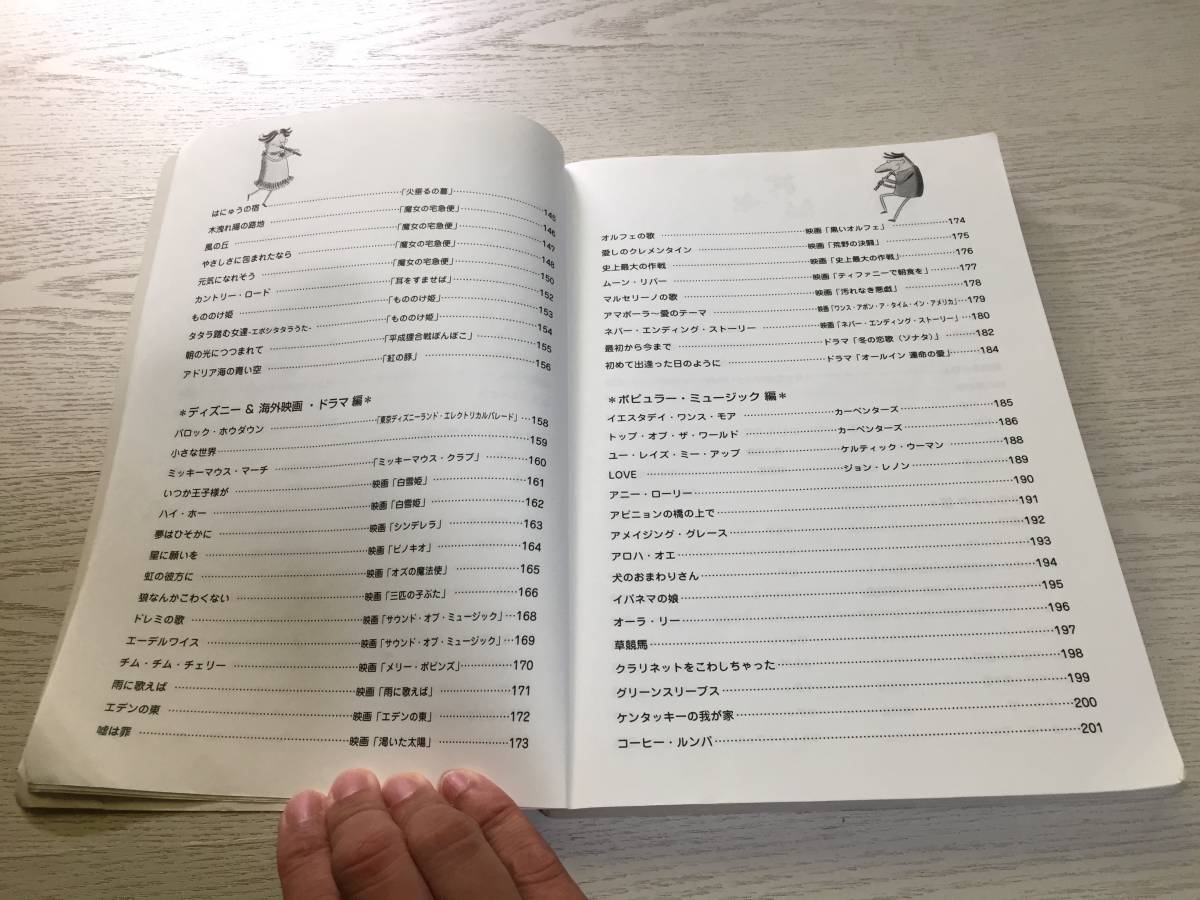 はにゅうの宿 ……「火垂るの墓」……145
木洩れ陽の路地 ……「魔女の宅急便」……146
風の丘 ……「魔女の宅急便」……147
やさしさに包まれたなら ……「魔女の宅急便」……148
元気になれそう ……「魔女の宅急便」……150
カントリー・ロード ……「耳をすませば」……152
もののけ姫 ……「もののけ姫」……153
タタラ踏む女達-エボシタタラうた- ……「もののけ姫」……154
朝の光につつまれて ……「平成狸合戦ぽんぽこ」……155
アドリア海の青い空 ……「紅の豚」……156
＊ディズニー & 海外映画・ドラマ 編＊
バロック・ホウダウン ……「東京ディズニーランド・エレクトリカルパレード」…158
小さな世界 ……159
ミッキーマウス・マーチ ……「ミッキーマウス・クラブ」……160
いつか王子様が ……映画「白雪姫」……161
ハイ・ホー ……映画「白雪姫」……162
夢はひそかに ……映画「シンデレラ」……163
星に願いを ……映画「ピノキオ」……164
虹の彼方に ……映画「オズの魔法使」……165
狼なんかこわくない ……映画「三匹の子ぶた」……166
ドレミの歌 ……映画「サウンド・オブ・ミュージック」…168
エーデルワイス ……映画「サウンド・オブ・ミュージック」…169
チム・チム・チェリー ……映画「メリー・ポピンズ」……170
雨に歌えば ……映画「雨に歌えば」……171
エデンの東 ……映画「エデンの東」……172
嘘は罪 ……映画「渇いた太陽」……173
オルフェの歌 ……映画「黒いオルフェ」……174
愛しのクレメンタイン ……映画「荒野の決闘」……175
史上最大の作戦 ……映画「史上最大の作戦」……176
ムーン・リバー ……映画「ティファニーで朝食を」……177
マルセリーノの歌 ……映画「汚れなき悪戯」……178
アマポーラ〜愛のテーマ ……映画「ワンス・アポン・ア・タイム・イン・アメリカ」…179
ネバー・エンディング・ストーリー ……映画「ネバー・エンディング・ストーリー」…180
最初から今まで ……ドラマ「冬の恋歌（ソナタ）」……182
初めて出逢った日のように ……ドラマ「オールイン 運命の愛」……184
＊ポピュラー・ミュージック 編＊
イエスタデイ・ワンス・モア ……カーペンターズ……185
トップ・オブ・ザ・ワールド ……カーペンターズ……186
ユー・レイズ・ミー・アップ ……ケルティック・ウーマン ……188
LOVE ……ジョン・レノン……189
アニー・ローリー……190
アビニョンの橋の上で……191
アメイジング・グレース……192
アロハ・オエ……193
犬のおまわりさん……194
イパネマの娘……195
オーラ・リー……196
草競馬……197
クラリネットをこわしちゃった……198
グリーンスリーブス……199
ケンタッキーの我が家……200
コーヒー・ルンバ……201